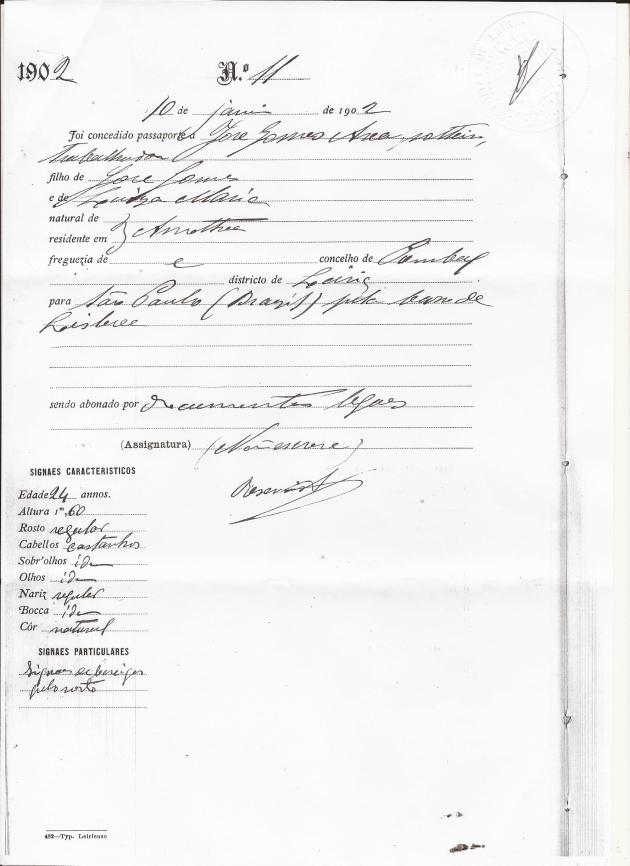 1902 N.º 11
10 de jan.º de 1902
Foi concedido passaporte a José Gomes solteiro,
trabalhador
filho de José Gomes
e de Luiza Maria
natural de
residente em
freguezia de e concelho de Pombal
districto de Leiria
para São Paulo (Brazil) pela barra de
Lisboa
sendo abonado por documentos legaes
(Assignatura) (Não escreve)
SIGNAES CARACTERISTICOS
Edade 24 annos.
Altura 1m,60
Rosto regular
Cabellos castanhos
Sobr'olhos idem
Olhos idem
Nariz regular
Bocca idem
Côr natural
SIGNAES PARTICULARES
Signaes de bexigas
pelo rosto
482—Typ. Leiriense